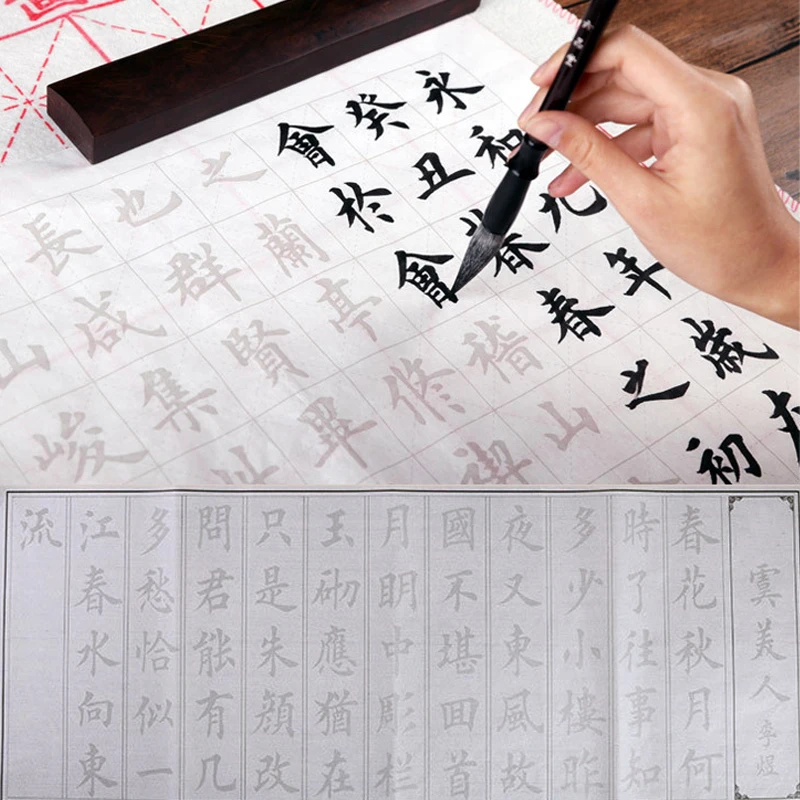 永和九年歲
癸丑暮春之初
會於會稽山
之蘭亭修禊
也群賢畢
長咸集此
山峻
虞美人 李煜
春花秋月何
時了往事知
多少小樓昨
夜又東風故
國不堪囬首
月明中彫栏
玉砌應猶在
只是朱顏改
問君能有几
多愁恰似一
江春水向東
流